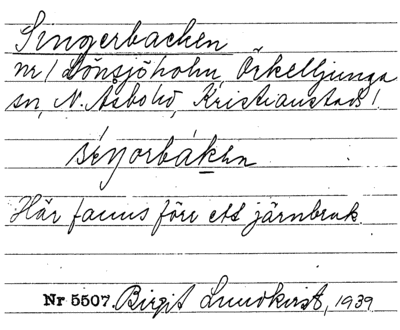 Singerbacken
nr 1 Lönsjöholm, Örkelljunga
sn, N. Åsbohd, Kristianstad l.
Här fanns förr ett järnbruk
Nr 5507. Birgit Lundkvist, 1939